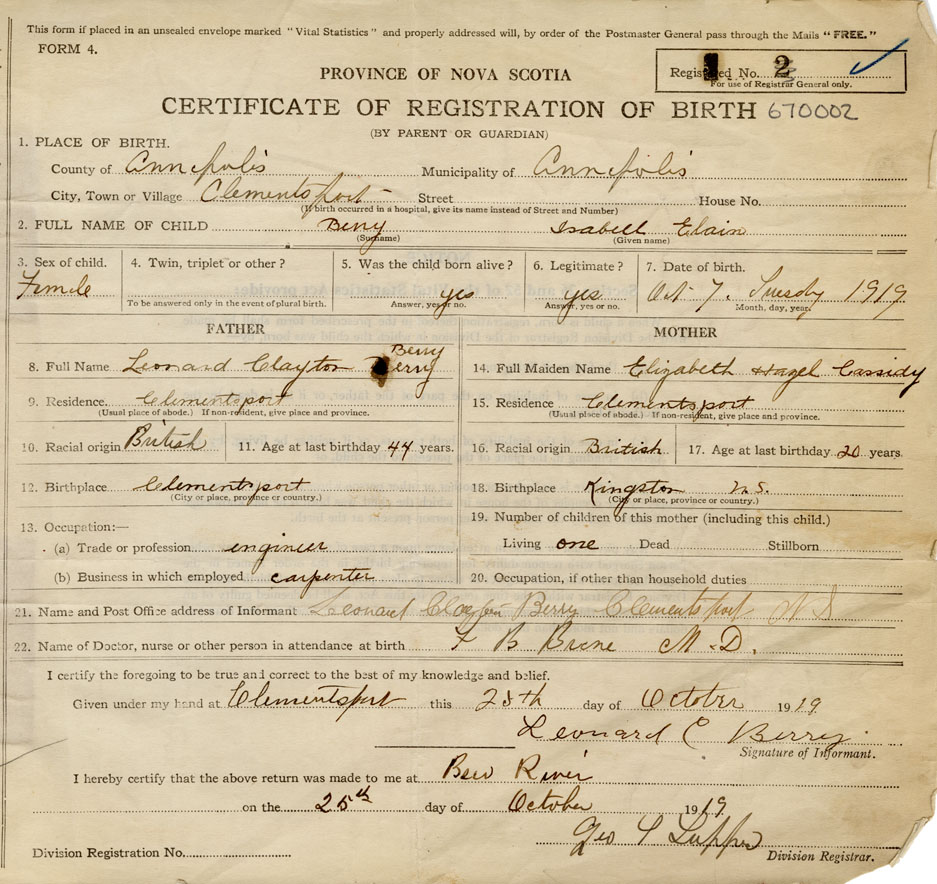 This form if placed in an unsealed envelope marked "Vital Statistics" and properly addressed will, by order of the Postmaster General pass through the Mails "FREE."
FORM 4.
PROVINCE OF NOVA SCOTIA
Registered No. 2
For use of Registrar General only.
CERTIFICATE OF REGISTRATION OF BIRTH 670002
(BY PARENT OR GUARDIAN)
1. PLACE OF BIRTH.
County of Annapolis Municipality of Annapolis
City, Town or Village Clementsport Street House No.
(If birth occurred in a hospital, give its name instead of Street and Number)
2. FULL NAME OF CHILD Berry Isabell Elain
(Surname) (Given name)
3. Sex of child. 4. Twin, triplet or other? 5. Was the child born alive? 6. Legitimate? 7. Date of birth.
Female yes yes Oct 7. Tuesday 1919
To be answered only in the event of plural birth. Answer, yes or no. Answer, yes or no. Month, day, year.
FATHER
Berry
8. Full Name Leonard Clayton Berry
9. Residence. Clementsport
(Usual place of abode.) If non-resident, give place and province.
10. Racial origin British 11. Age at last birthday 44 years.
12. Birthplace Clementsport
(City or place, province or country.)
13. Occupation:—
(a) Trade or profession engineer
(b) Business in which employed carpenter
MOTHER
14. Full Maiden Name Elizabeth Hazel Cassidy
15. Residence Clementsport
(Usual place of abode.) If non-resident, give place and province.
16. Racial origin British 17. Age at last birthday 20 years.
18. Birthplace Kingston N.S.
(City or place, province or country.)
19. Number of children of this mother (including this child.)
Living one Dead Stillborn
20. Occupation, if other than household duties
21. Name and Post Office address of Informant Leonard Clayton Berry Clementsport N S
22. Name of Doctor, nurse or other person in attendance at birth F B Brine M.D.
I certify the foregoing to be true and correct to the best of my knowledge and belief.
Given under my hand at Clementsport this 25th day of October 1919
Leonard C Berry
Signature of Informant.
I hereby certify that the above return was made to me at Bear River
on the 25th day of October 1919
Geo
Division Registration No. Division Registrar.